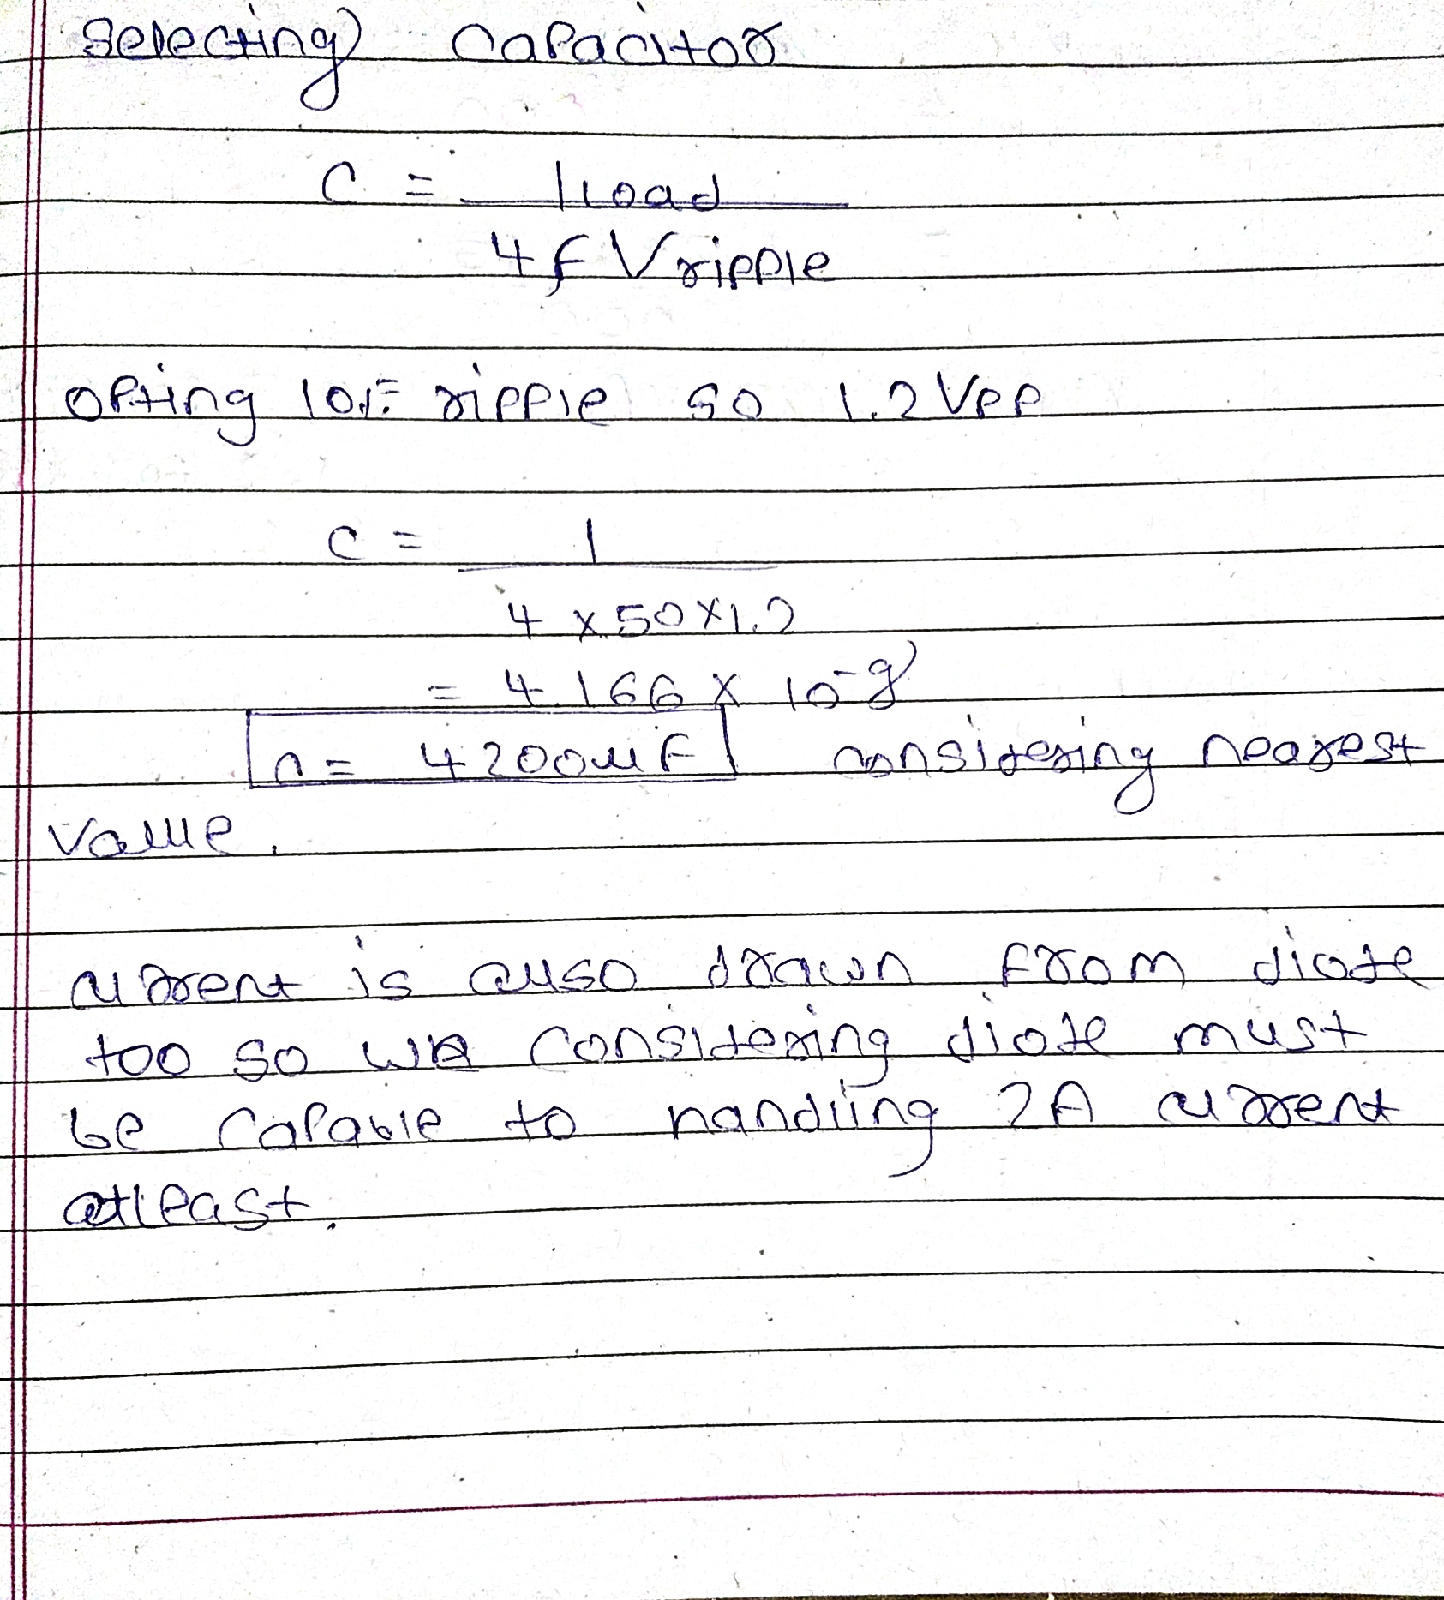 Selecting Capacitor
C = Iload
4fVripple
Opting 10% ripple so 1.2 Vpp
C = 1
4 x 50 x 1.2
= 4.166 x 10^-3
C = 4200uF considering nearest
value.
current is also drawn from diode
too so we considering diode must
be capable to handling 2A current
atleast.